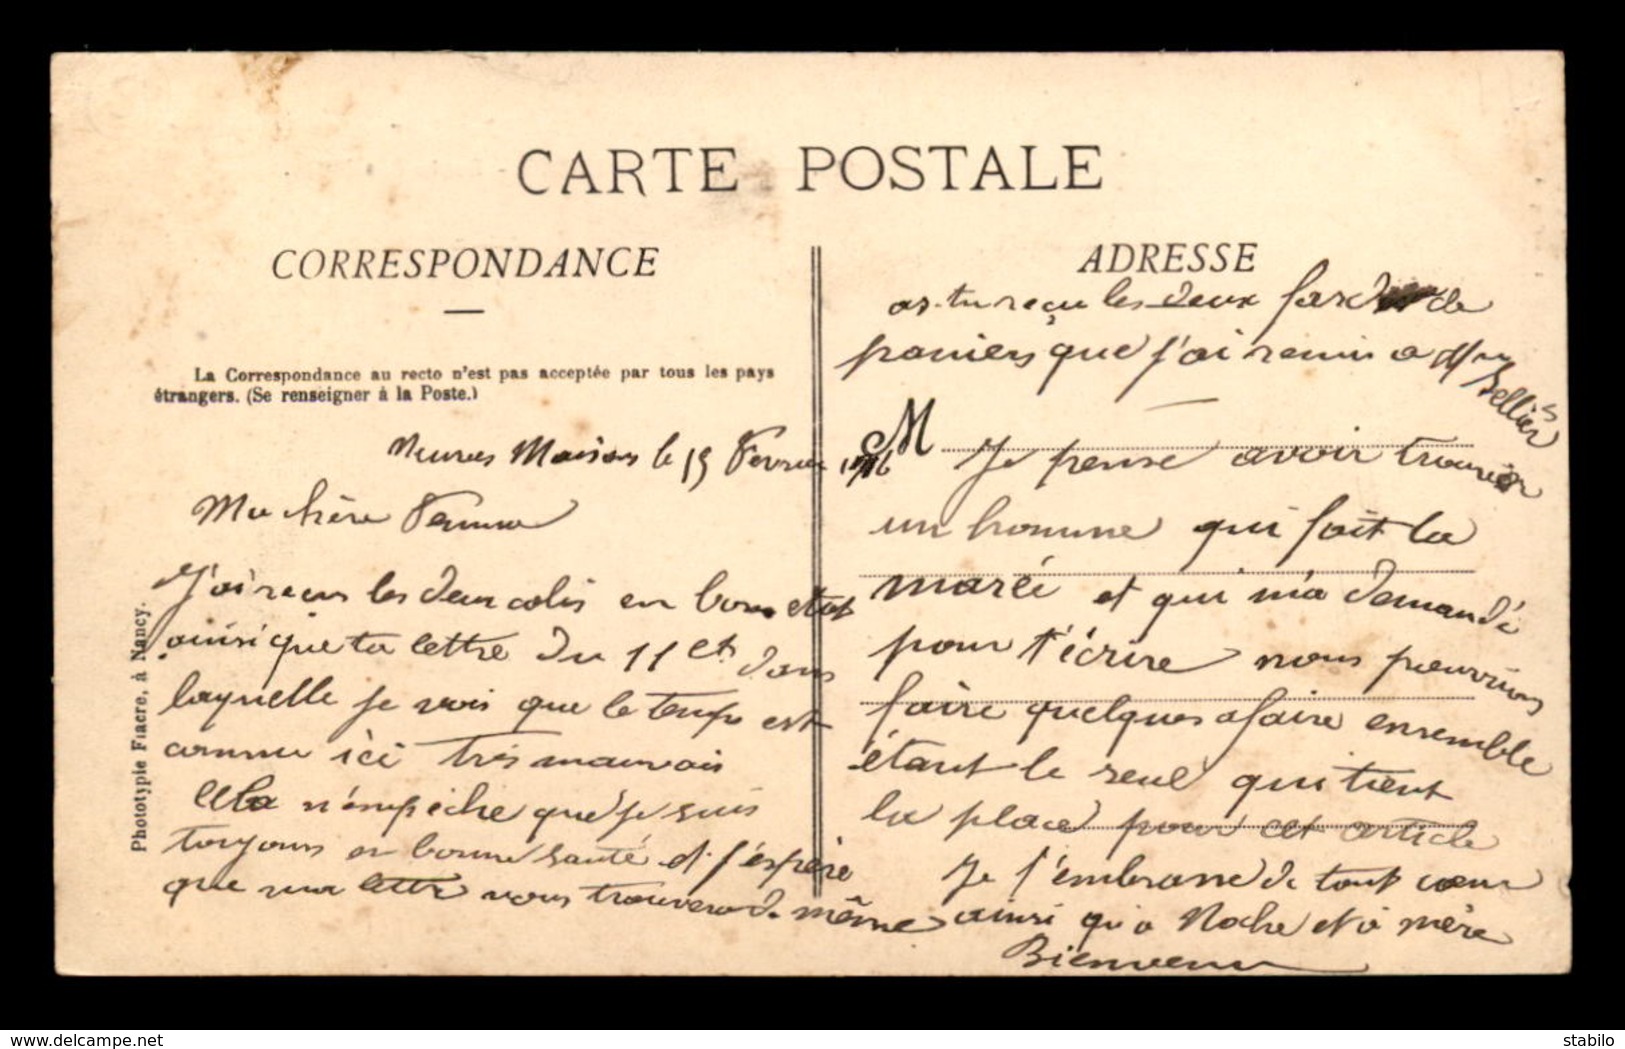 CARTE POSTALE
CORRESPONDANCE
La Correspondance au recto n'est pas acceptée par tous les pays
étrangers. (Se renseigner à la Poste.)
Neuves Maisons le 15 Fevrier 1916
Ma chère Femme
J'ai reçu les deux colis en bon etat
ainsi que ta lettre du 11 ct dans
laquelle je vois que le temps est
comme ici très mauvais
Cela n'empêche que je suis
toujours en bonne santé et j'espère
que ma lettre vous trouvera de même
Phototypie Fiacre, à Nancy.
ADRESSE
as-tu reçu les deux de
paniers que j'ai remis a Mme Sellier
M
Je pense avoir trouvier
un homme qui fait la
marée et qui m'a demandé
pour t'écrire nous pourrions
faire quelques afaire ensemble
étant le seul qui tient
la place pour cet article
Je t'embrasse de tout coeur
ainsi qu'a et à mère
Bienvenu
stabilo
www.delcampe.net